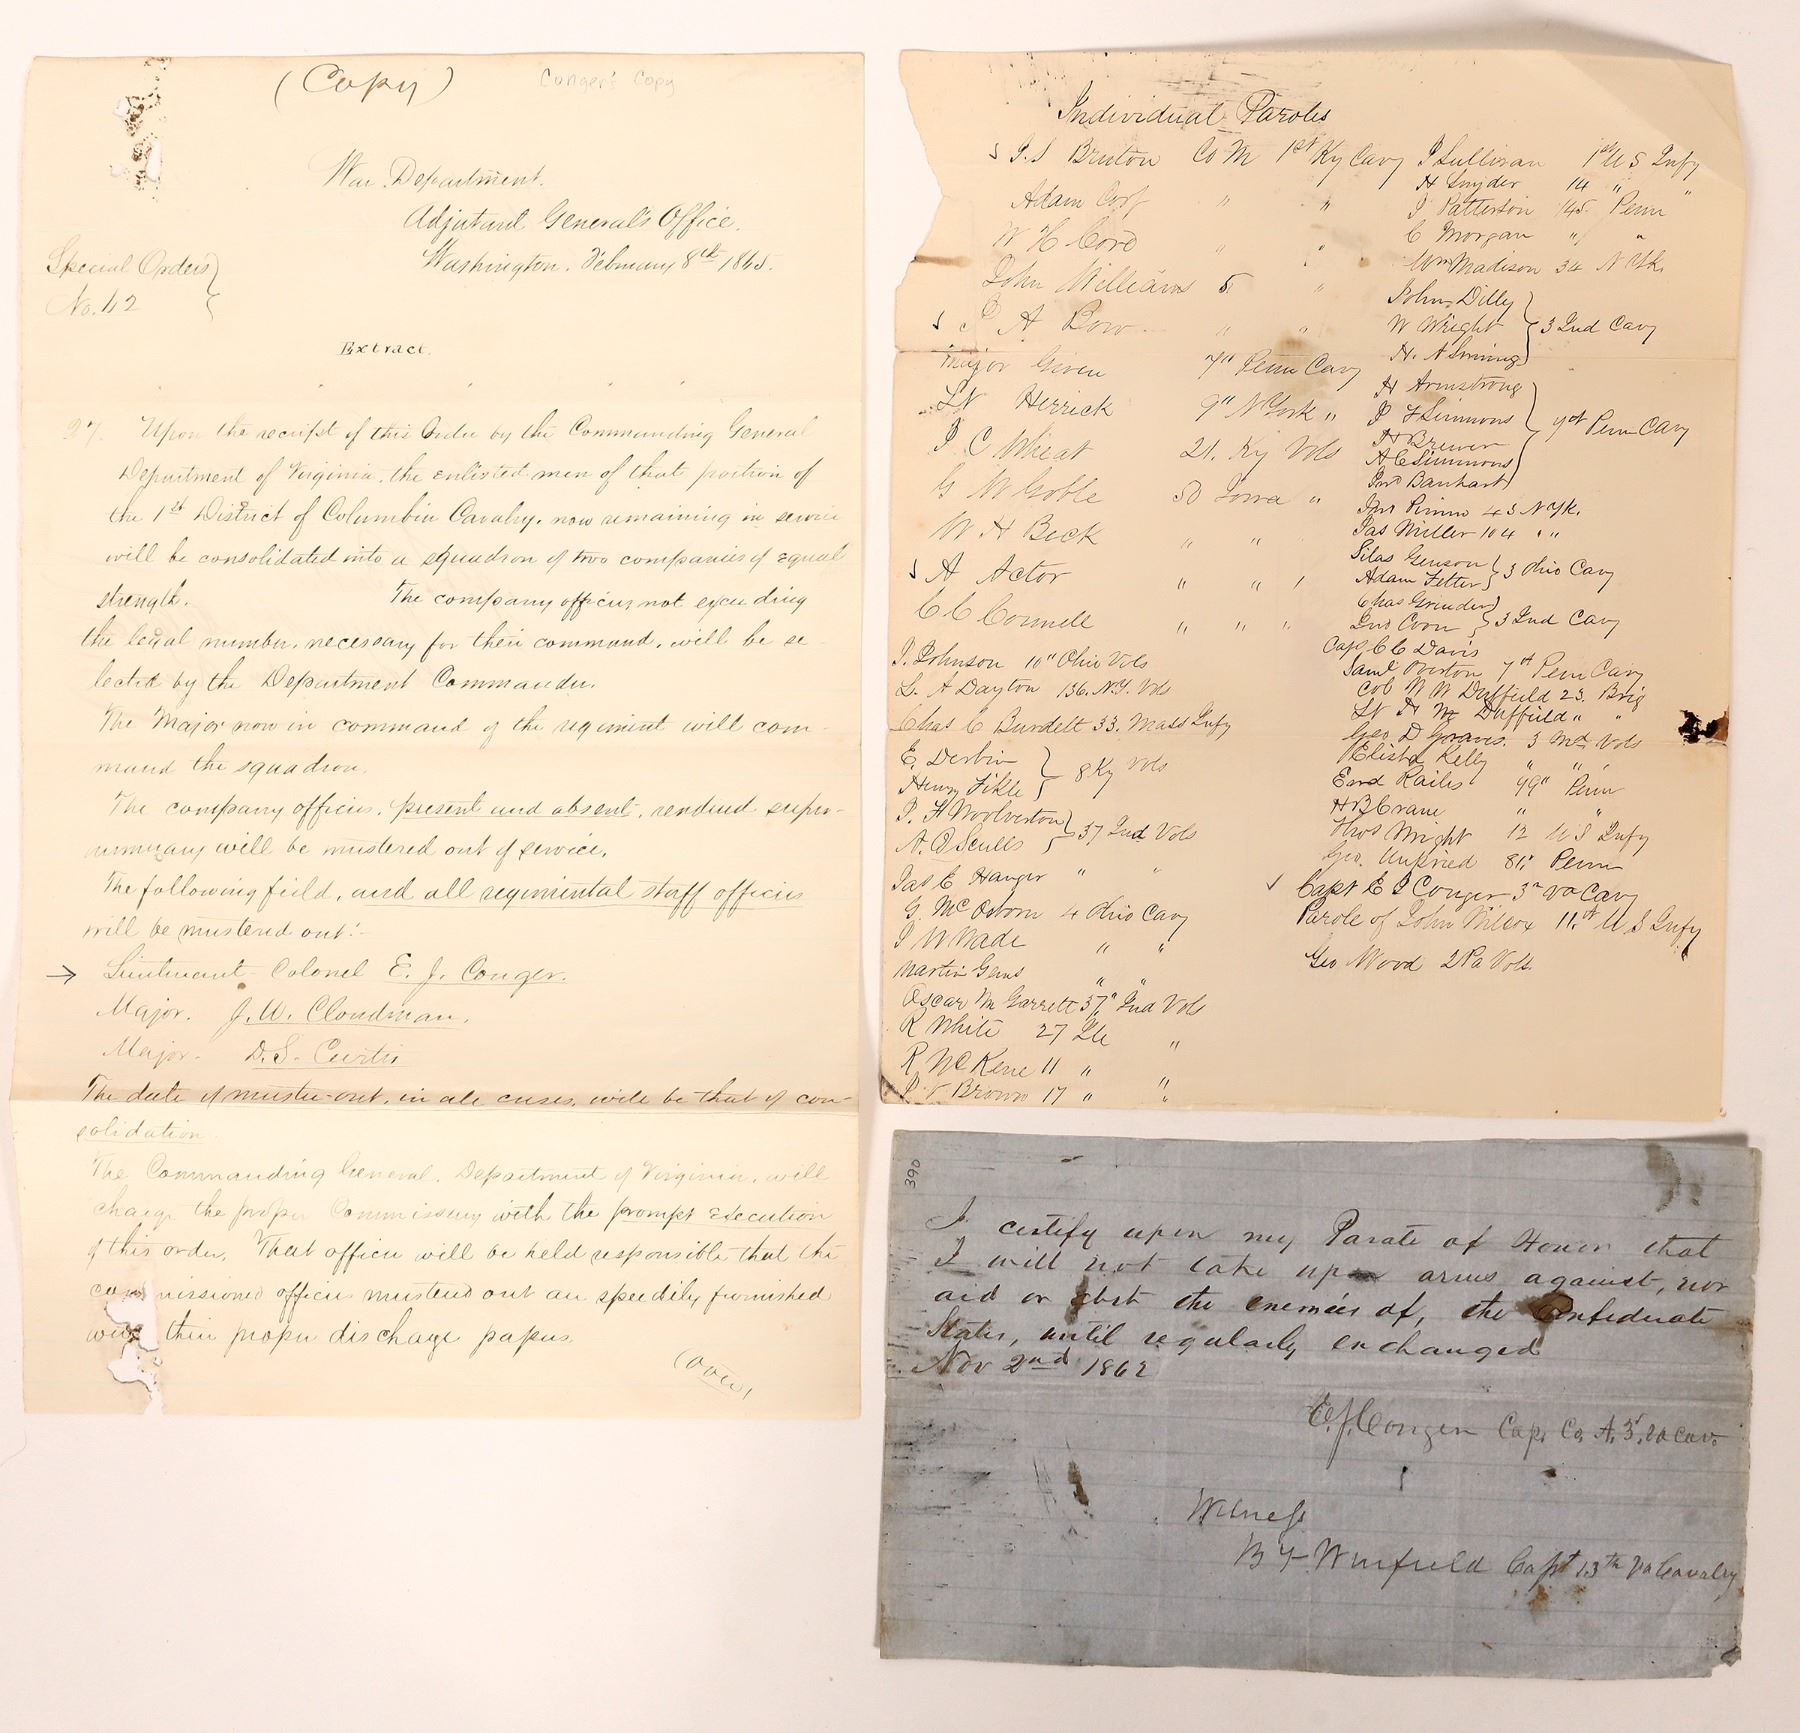 (Copy)
Conger's Copy
War Department.
Adjutant General's Office.
Washington. February 8th 1865.
Special Orders
No. 42
Extract.
27. Upon the receipt of this Order by the Commanding General
Department of Virginia, the enlisted men of that portion of
the 1st District of Columbia Cavalry, now remaining in service
will be consolidated into a squadron of two companies of equal
strength. The company officers not exceeding
the legal number, necessary for their command, will be se-
lected by the Department Commander.
The Major now in command of the regiment will com-
mand the squadron.
The company officers, present and absent, rendered super-
numerary will be mustered out of service.
The following field, and all regimental staff officers
will be mustered out:-
→ Lieutenant-Colonel E. J. Conger.
Major. J. W. Cloudman.
Major- D. S. Curtis
The date of muster-out, in all cases, will be that of con-
solidation.
The Commanding General, Department of Virginia, will
charge the proper Commissary with the prompt execution
of this order. That officer will be held responsible that the
commissioned officers mustered out are speedily furnished
with their proper discharge papers
(over)
Individual Paroles
J. S Bruton Co M 1st Ky Cavy
Adam " "
W H Cord " "
John Williams 5 "
A Bow " "
Major Given 7" Penn Cavy
Lt Herrick 9" N York "
J C Wheat 21. Ky Vols
G W Goble 50 Iowa "
W H Beck " " "
A Actor " " "
C C Connell " " "
J. Johnson 10" Ohio Vols
L. A Dayton 136. N.Y. Vols
Chas C Burdett 33. Mass Infy
E. Derbin
Henry Fikle 8 Ky Vols
J. H Woolverton
A. Q Sculls 37 Ind Vols
Jas E Hanger " "
G. McOsborn 4 Ohio Cavy
J W Wade " "
Martin Gems " "
Oscar M Garrett 37" Ind Vols
R White 27 Ills "
R. McKene 11 " "
Brown 17 " "
J Sullivan 1st U S Infy
H Snyder 14 " "
J Patterson 145 Penn "
C Morgan " "
Wm Madison 34 N Yk.
John Dilly
W Wright 3 Ind Cavy
H. A
H Armstrong
J F Simmons 7th Penn Cavy
H Brewer
A C Simmons
Jno Banhart
Jno Pimm 43 N Yk.
Jas Miller 104 " "
Silas Genson
Adam Fetter 3 Ohio Cavy
Chas Grinder
Jno Coon 3 Ind Cavy
Capt C C Davis
Saml Overton 7th Penn Cavy
Col W W Duffield 23. Brig
Lt H M Duffield " "
Geo D Graves. 3 Md Vols
Elisha Kelly " " "
Railes 99" Penn
H B Crane " "
Thos Wright 12 U S Infy
Geo. Unfried 81" Penn
Capt E J Conger 3rd Va Cavy
Parole of John Wilcox 11th U S Infy
Geo Wood 2 Pa Vols.
390
I certify upon my Parole of Honor that
I will not take up arms against, nor
aid or abet the enemies of, the Confederate
States, until regularly exchanged
Nov 2nd 1862
E. J. Conger Cap. Co A. 3d. Va Cav.
Witness
B F Winfield Capt 13th Va Cavalry